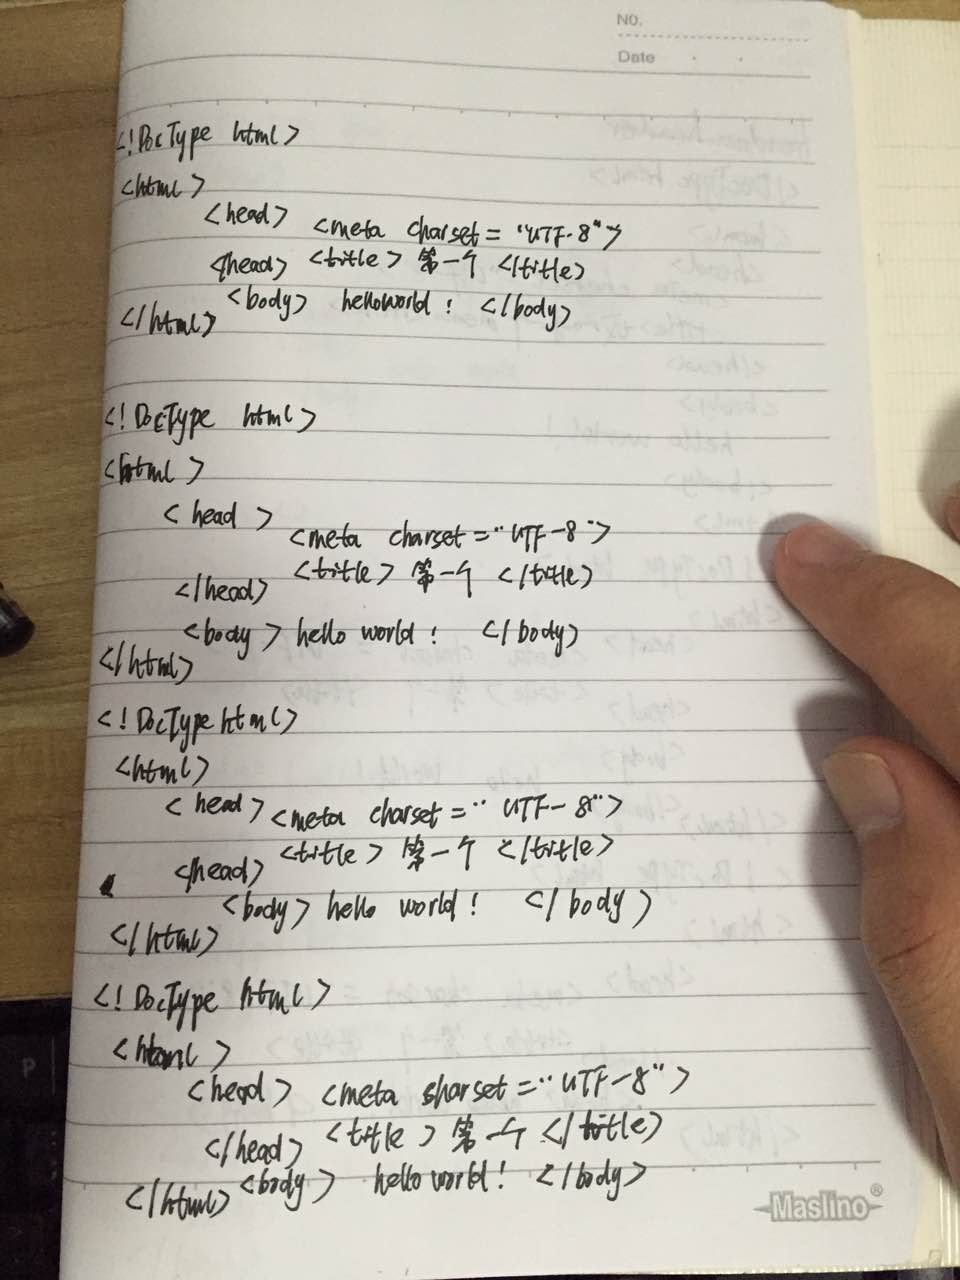 NO.
Date
<!DocType html>
<html>
<head> <meta charset = "UTF-8">
</head> <title> 第一个 </title>
<body> helloworld ! </body>
</html>
<!DocType html>
<html>
<head>
<meta charset = "UTF-8">
<title> 第一个 </title>
</head>
<body> hello world ! </body>
</html>
<!DocType html>
<html>
<head> <meta charset = "UTF-8">
<title> 第一个 </title>
</head>
<body> hello world ! </body>
</html>
<!DocType html>
<html>
<head> <meta sharset = "UTF-8">
</head> <title> 第一个 </title>
<body> hello world ! </body>
</html>
Maslino®
P